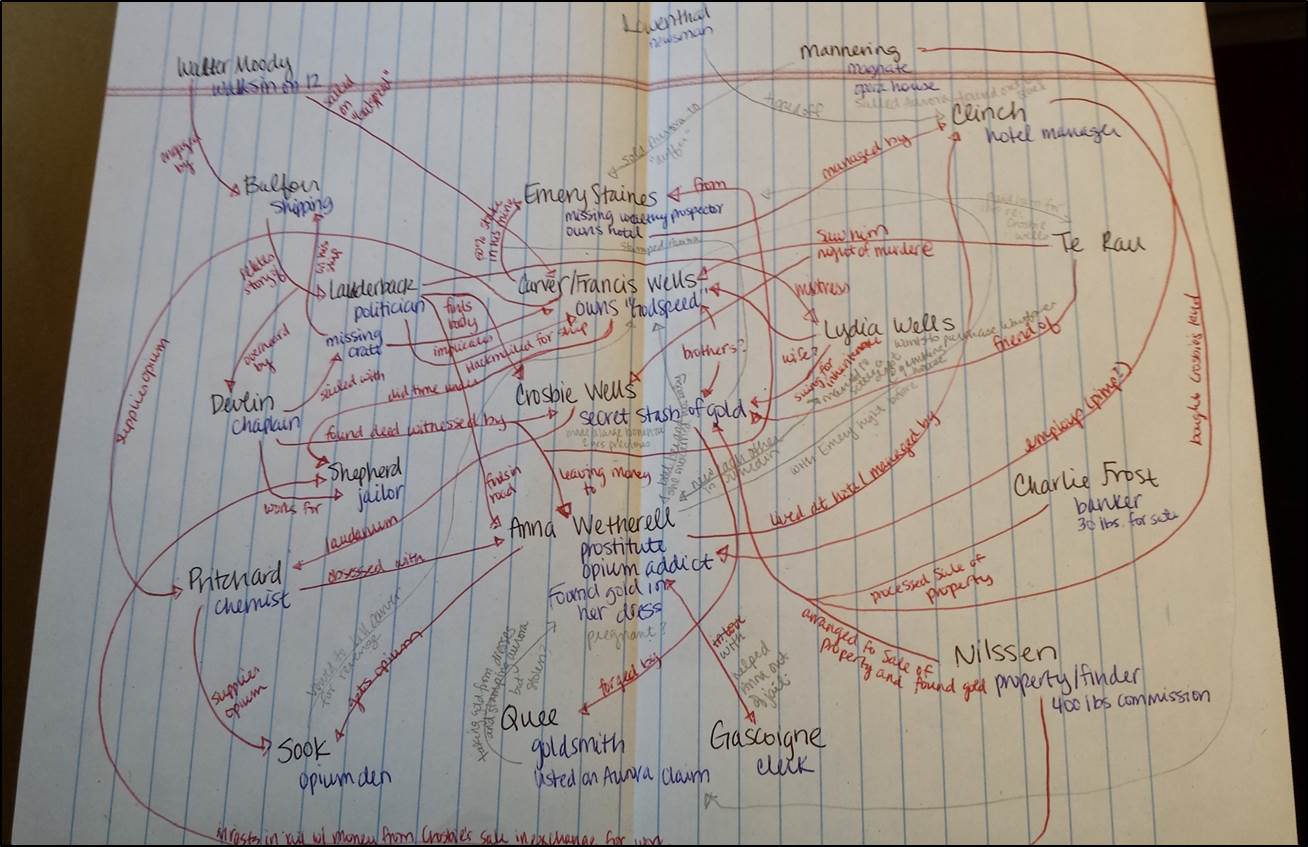 Lowenthal
newsman
Walter Moody
walks in on 12
sailed
on
"Godspeed"
mannering
magnate
opera house
sold Aurora to
traded off
Clinch
hotel manager
managed by
Balfour
shipping
Emery Staines
missing wealthy prospector
owns hotel
from
50% stake
in his mine
stamped Aurora
saw him
night of murder
Te Rau
relates
story to
in his
ship
Lauderback
politician
Carver/Francis Wells
owns "Godspeed"
mistress
Lydia Wells
missing
crate
finds
body
blackmailed for ship
brothers?
wife?
suing for
inheritance
friend of
supplies opium
sailed with
did time under
Crosbie Wells
secret stash of gold
Devlin
chaplain
found dead witnessed by
with Emery night before
Shepherd
jailor
works for
finds in
road
leaving money
to
lived at hotel managed by
employ (pimp?)
buyles Crosbies land
laudanum
Anna Wetherell
prostitute
opium addict
Found gold in
her dress
pregnant?
Charlie Frost
banker
30 lbs. for sale
processed sale of
property
Pritchard
chemist
obsessed with
supplies
opium
gets opium
for revenge
taking gold from dresses
and stamping Aurora
but
stolen?
forged by
in love
with
helped
Anna out
of jail
arranged for sale of
property and found gold
Nilssen
property/finder
400 lbs commission
Sook
opium den
Quee
goldsmith
listed on Aurora claim
Gascoigne
clerk
invests in jail w/ money from Crosbie's sale in exchange for